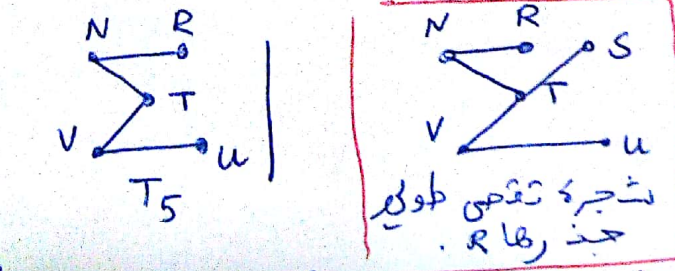 N R
T
V
U
T5
N R
S
T
V
U
شجرة تقصي طولي
جذرها R.